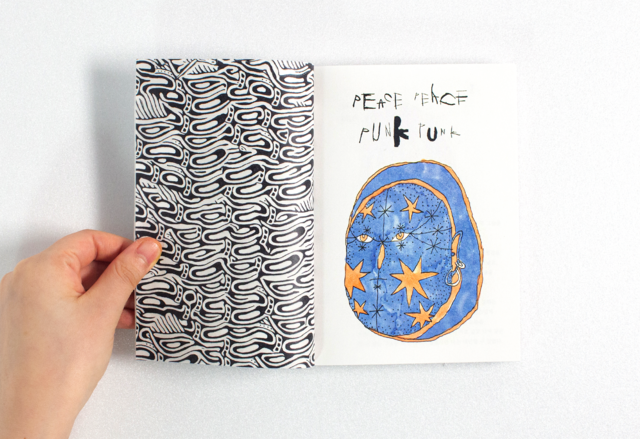 PEASE PEACE
PUNk PUNK